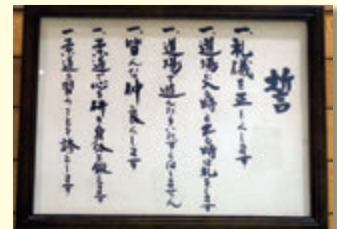 誓
一、礼儀を正しくします
一、道場に入る時と出る時は礼をします
一、道場で遊んだりいたずらはしません
一、皆んな仲良くします
一、柔道で心を研き身体を鍛えます
一、柔道を習うことを誇りとします